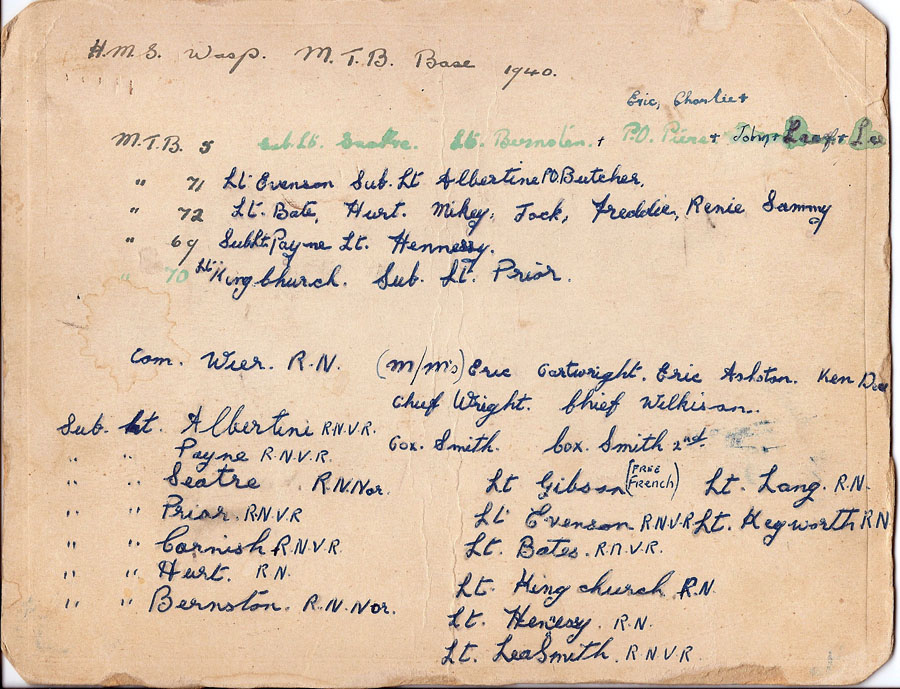 H.M.S. Wasp. M.T.B. Base 1940.
Eric, Charlie +
M.T.B. 5 Sub. Lt. Seatre. Lt. Bernsten. + P.O. + John +
" 71 Lt Evenson Sub. Lt Albertine P.O. Butcher,
" 72 Lt. Bate, Hurt. Mikey, Jock, Freddie, Renie Sammy
" 69 SubLt. Payne Lt. Hennessy.
" 70 Lt. Kingchurch. Sub. Lt. Prior.
Com. Wier. R.N. (M/M's) Eric Cartwright. Eric Ashton. Ken
Chief Wright. Chief Wilkison..
Sub. Lt. Albertini R.N.V.R. Cox. Smith. Cox. Smith 2nd.
" " Payne R.N.V.R.
" " Seatre R.N.Nor. Lt Gibson (FREE French) Lt. Lang. R.N.
" " Prior. R.N.V.R Lt Evenson R.N.V.R Lt. Kegworth R.N
" " Cornish R.N.V.R. Lt. Bates. R.N.V.R.
" " Hurt. R.N. Lt. Kingchurch R.N.
" " Bernston. R.N.Nor. Lt. Henessy. R.N.
Lt. LeaSmith. R.N.V.R.